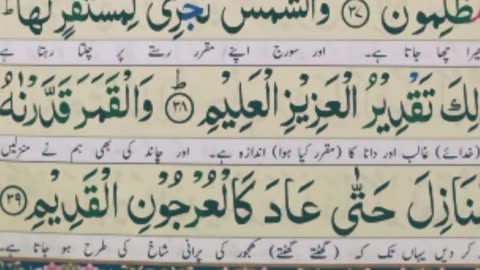 مُظْلِمُونَ ۝٣٧ وَالشَّمْسُ تَجْرِىْ لِمُسْتَقَرٍّ لَّهَا
چھا جاتا ہے۔ اور سورج اپنے مقرر رستے پر چلتا رہتا ہے
ذٰلِكَ تَقْدِيْرُ الْعَزِيْزِ الْعَلِيْمِ ۝٣٨ وَالْقَمَرَ قَدَّرْنٰهُ
(خدائے) غالب اور دانا کا (مقرر کیا ہوا) اندازہ ہے۔ اور چاند کی بھی ہم نے منزلیں
مَنَازِلَ حَتّٰى عَادَ كَالْعُرْجُوْنِ الْقَدِيْمِ ۝٣٩
کر دیں یہاں تک کہ (گھٹتے گھٹتے) کھجور کی پرانی شاخ کی طرح ہو جاتا ہے۔